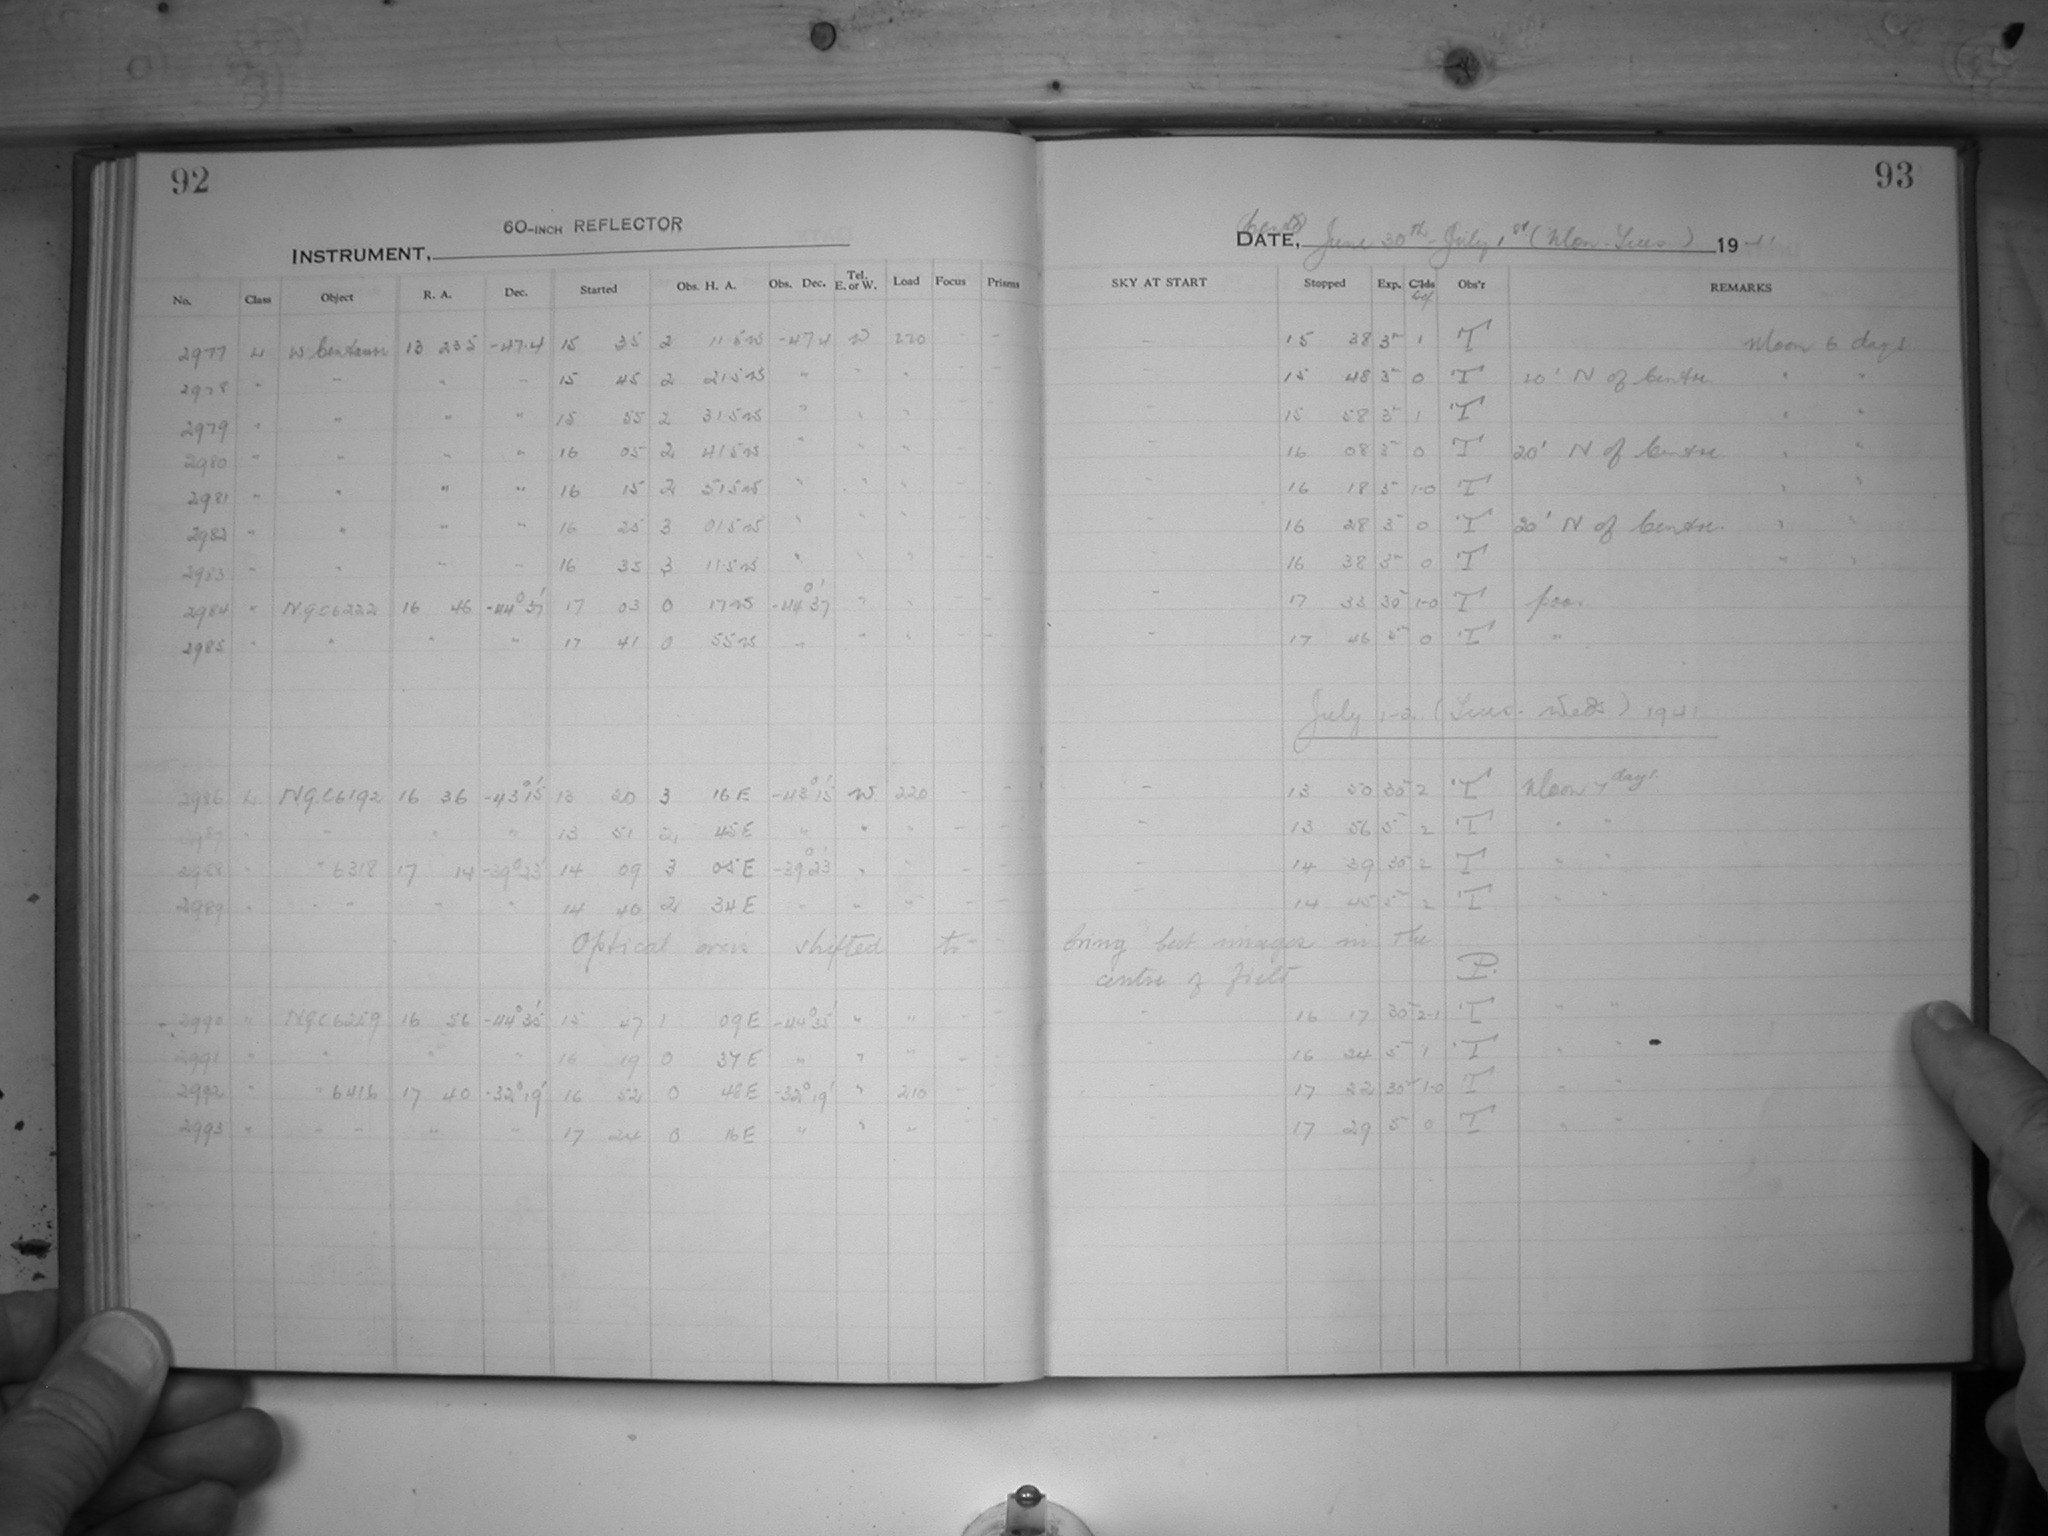 92
60-INCH REFLECTOR
INSTRUMENT,
No. Class Object R. A. Dec. Started Obs. H. A. Obs. Dec. Tel. E. or W. Load Focus Prisms
2977 L ω Centauri 13 23.5 -47.4 15 35 2 11.5 W -47.4 W 220 - -
2978 " " " " 15 45 2 21.5 W " " " - -
2979 " " " " 15 55 2 31.5 W " " " - -
2980 " " " " 16 05 2 41.5 W " " " - -
2981 " " " " 16 15 2 51.5 W " " " - -
2982 " " " " 16 25 3 01.5 W " " " - -
2983 " " " " 16 35 3 11.5 W " " " - -
2984 " N.G.C 6222 16 46 -44°37' 17 03 0 17 W -44°37' " " - -
2985 " " " " 17 41 0 55 W " " " - -
2986 L N.G.C 6192 16 36 -43°15' 13 20 3 16 E -43°15' W 220 - -
2987 " " " " 13 51 2 45 E " " " - -
2988 " " 6318 17 14 -39°23' 14 09 3 05 E -39°23' " " -
2989 " " " " " 14 40 2 34 E " " " - -
Optical axis shifted to
2990 " N.G.C 6259 16 56 -44°35' 15 47 1 09 E -44°35' " " - -
2991 " " " " 16 19 0 37 E " " " - -
2992 " " 6416 17 40 -32°19' 16 52 0 48 E -32°19' " 210 - -
2993 " " " " " 17 24 0 16 E " " " - -
93
DATE, June 30th - July 1st (Mon - Tues) 19
SKY AT START Stopped Exp. Clds Obs'r REMARKS
- 15 38 3m 1 T Moon 6 days
- 15 48 3 0 T 20' N of Centre " "
- 15 58 3 1 T " "
- 16 08 3 0 T 20' N of Centre " "
- 16 18 3 1-0 T " "
- 16 28 3 0 T 20' N of Centre. " "
- 16 38 3m 0 T " "
- 17 33 30 1-0 T poor
- 17 46 5 0 T "
July 1-2 (Tues - Wed) 1941
- 13 50 30 2 T Moon 7 days.
- 13 56 5 2 T " "
- 14 39 30 2 T " "
- 14 45 5 2 T " "
bring best images in the
centre of field P.
- 16 17 30 2-1 T " "
- 16 24 5 1 T " "
- 17 22 30 1-0 T " "
- 17 29 5 0 T " "